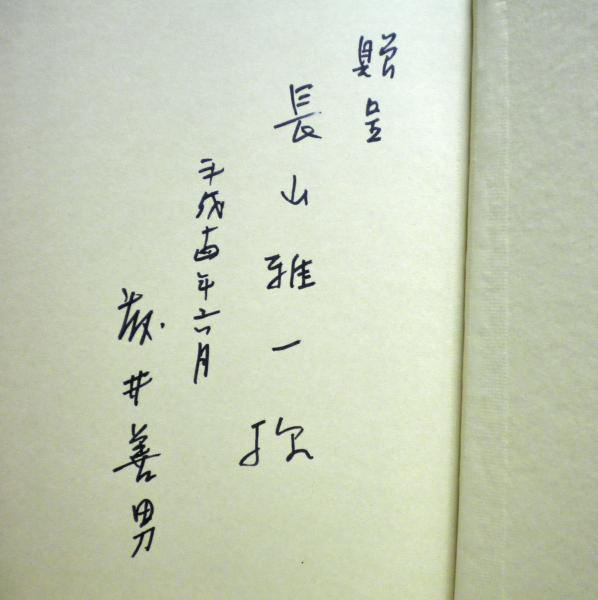 贈呈
長山雅一様
平成十四年六月
井善男